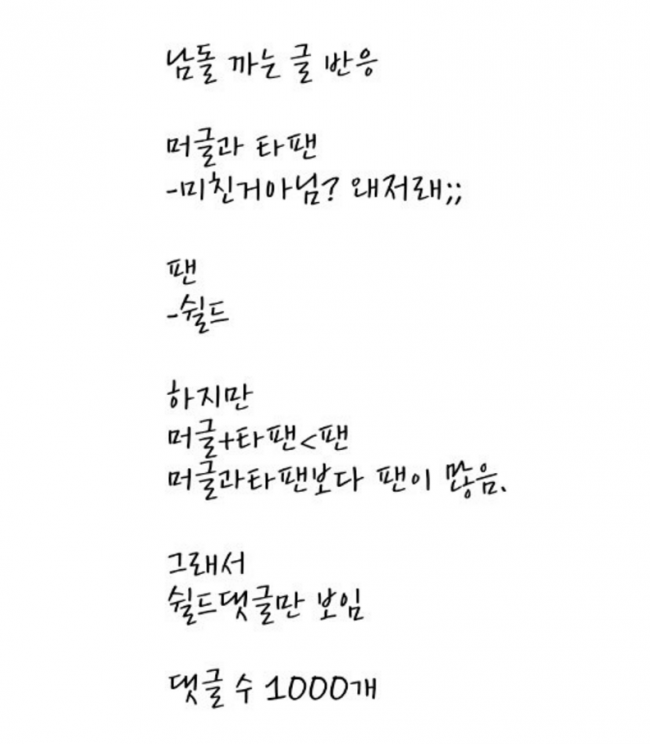 남돌 까는 글 반응
머글과 타팬
-미친거아님? 왜저래;;
팬
-쉴드
하지만
머글+타팬<팬
머글과타팬보다 팬이 많음.
그래서
쉴드댓글만 보임
댓글 수 1000개